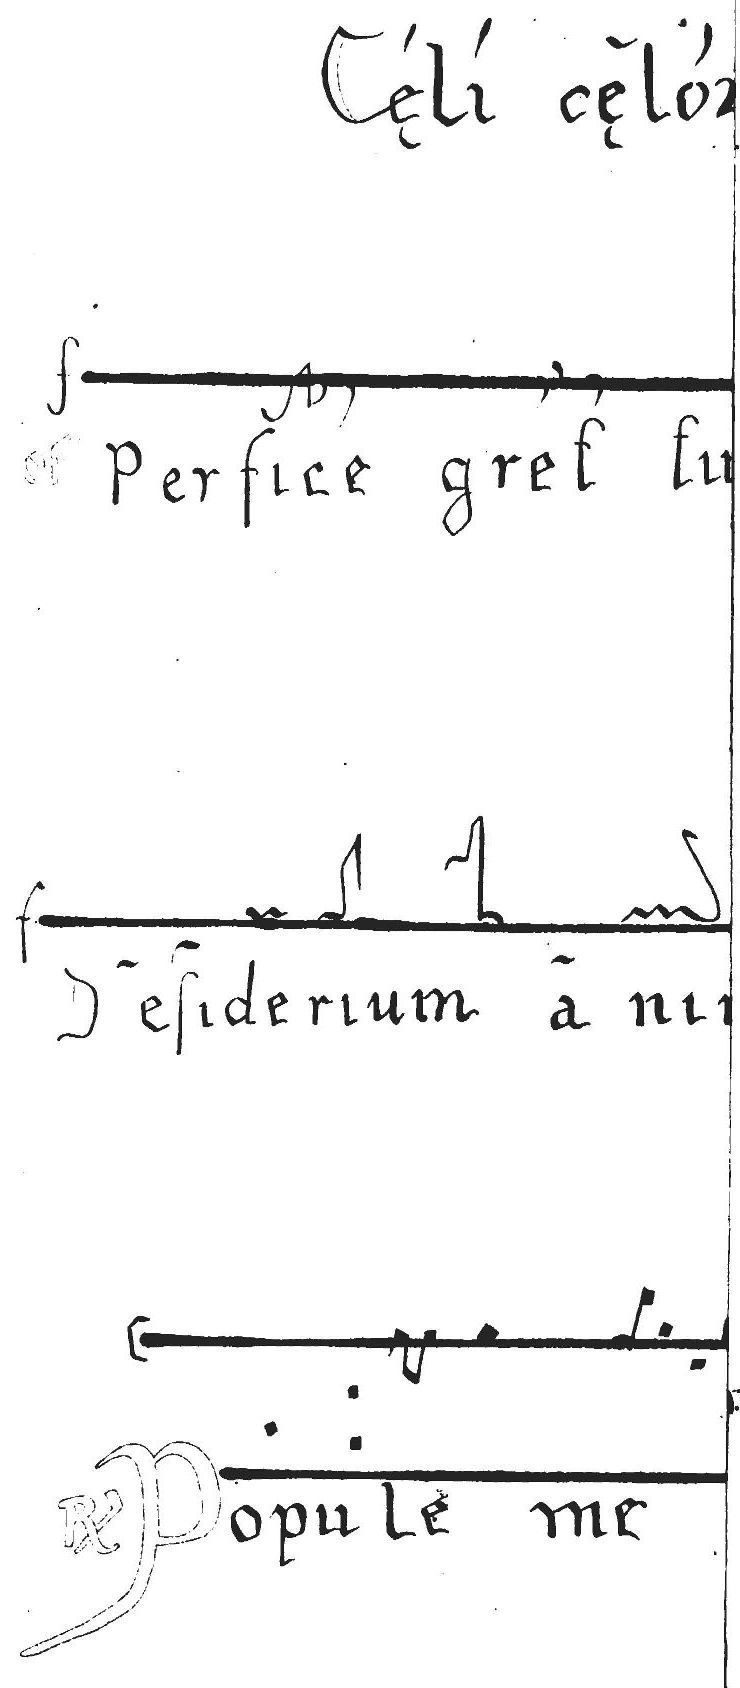 Cęlí cęló
f
of Perfice gret tu
f
Desiderium a ni
C
℟ Popule me